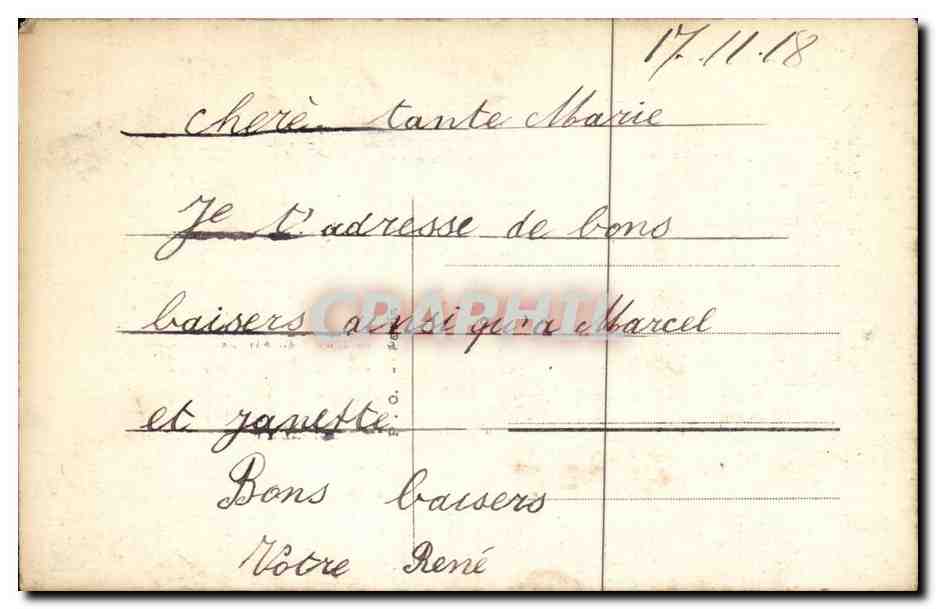 17.11.18
cherè tante Marie
Je t'adresse de bons
baisers ainsi qu'a Marcel
et Janette
Bons baisers
Votre René
CPAPHIL